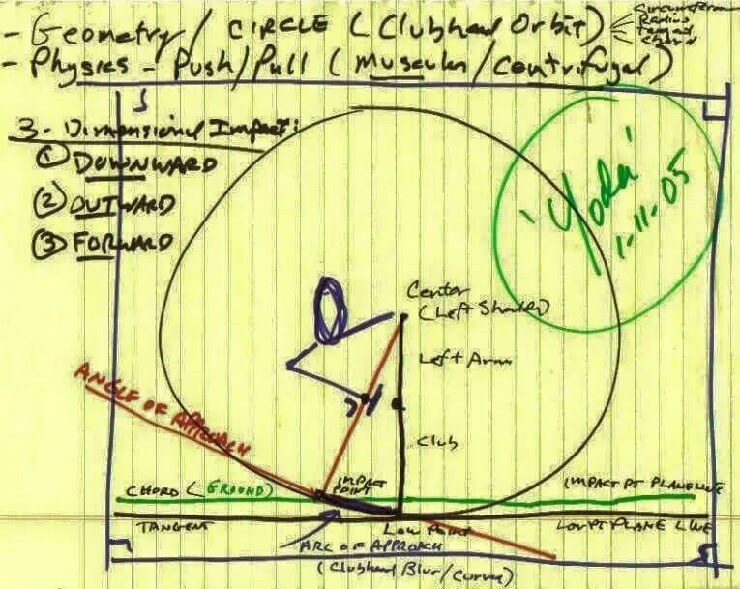 - Geometry / CIRCLE (Clubhead Orbit)
Circumference
Radius
Tangent
Chord
- Physics - Push/Pull (Muscular/Centrifugal)
3-Dimensional Impact:
① DOWNWARD
② OUTWARD
③ FORWARD
'Yoda'
1-11-05
Center
(Left Shoulder)
Left Arm
ANGLE OF APPROACH
Club
CHORD (GROUND)
IMPACT
POINT
IMPACT PT PLANE LINE
TANGENT
Low Point
LOW PT PLANE LINE
ARC OF APPROACH
(Clubhead Blur/Curve)